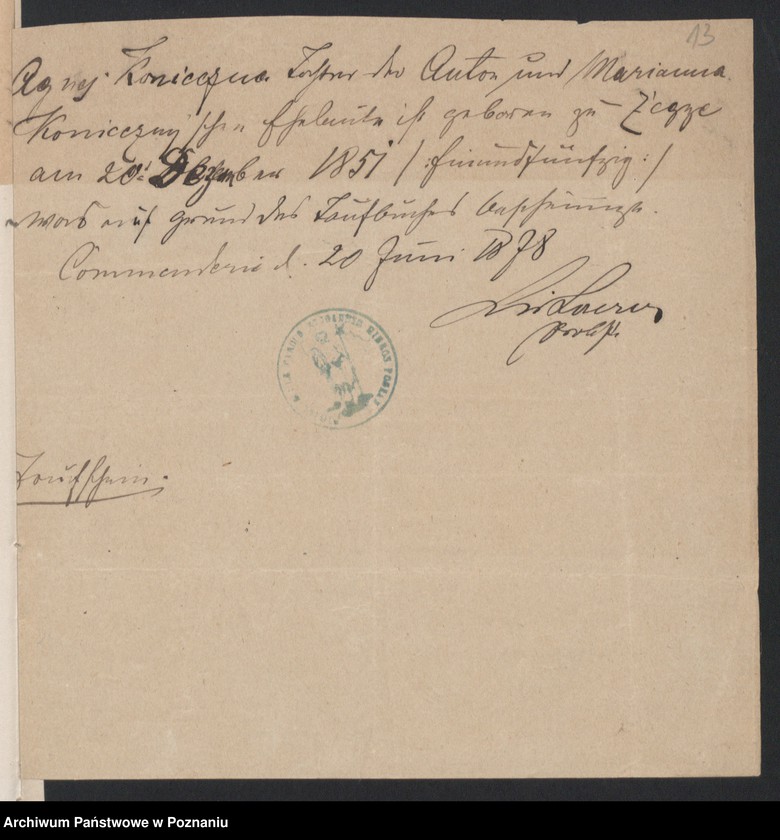 13
Agnes Konieczna Tochter der Anton und Marianna
Konieczny'schen Eheleute ist geboren zu Żegrze
am 20t Dezember 1851 /:Einundfünfzig:/
was auf Grund des Taufbuches bescheinigt.
Commenderie d. 20 Juni 1878
Probst.
Taufschein.
Archiwum Państwowe w Poznaniu